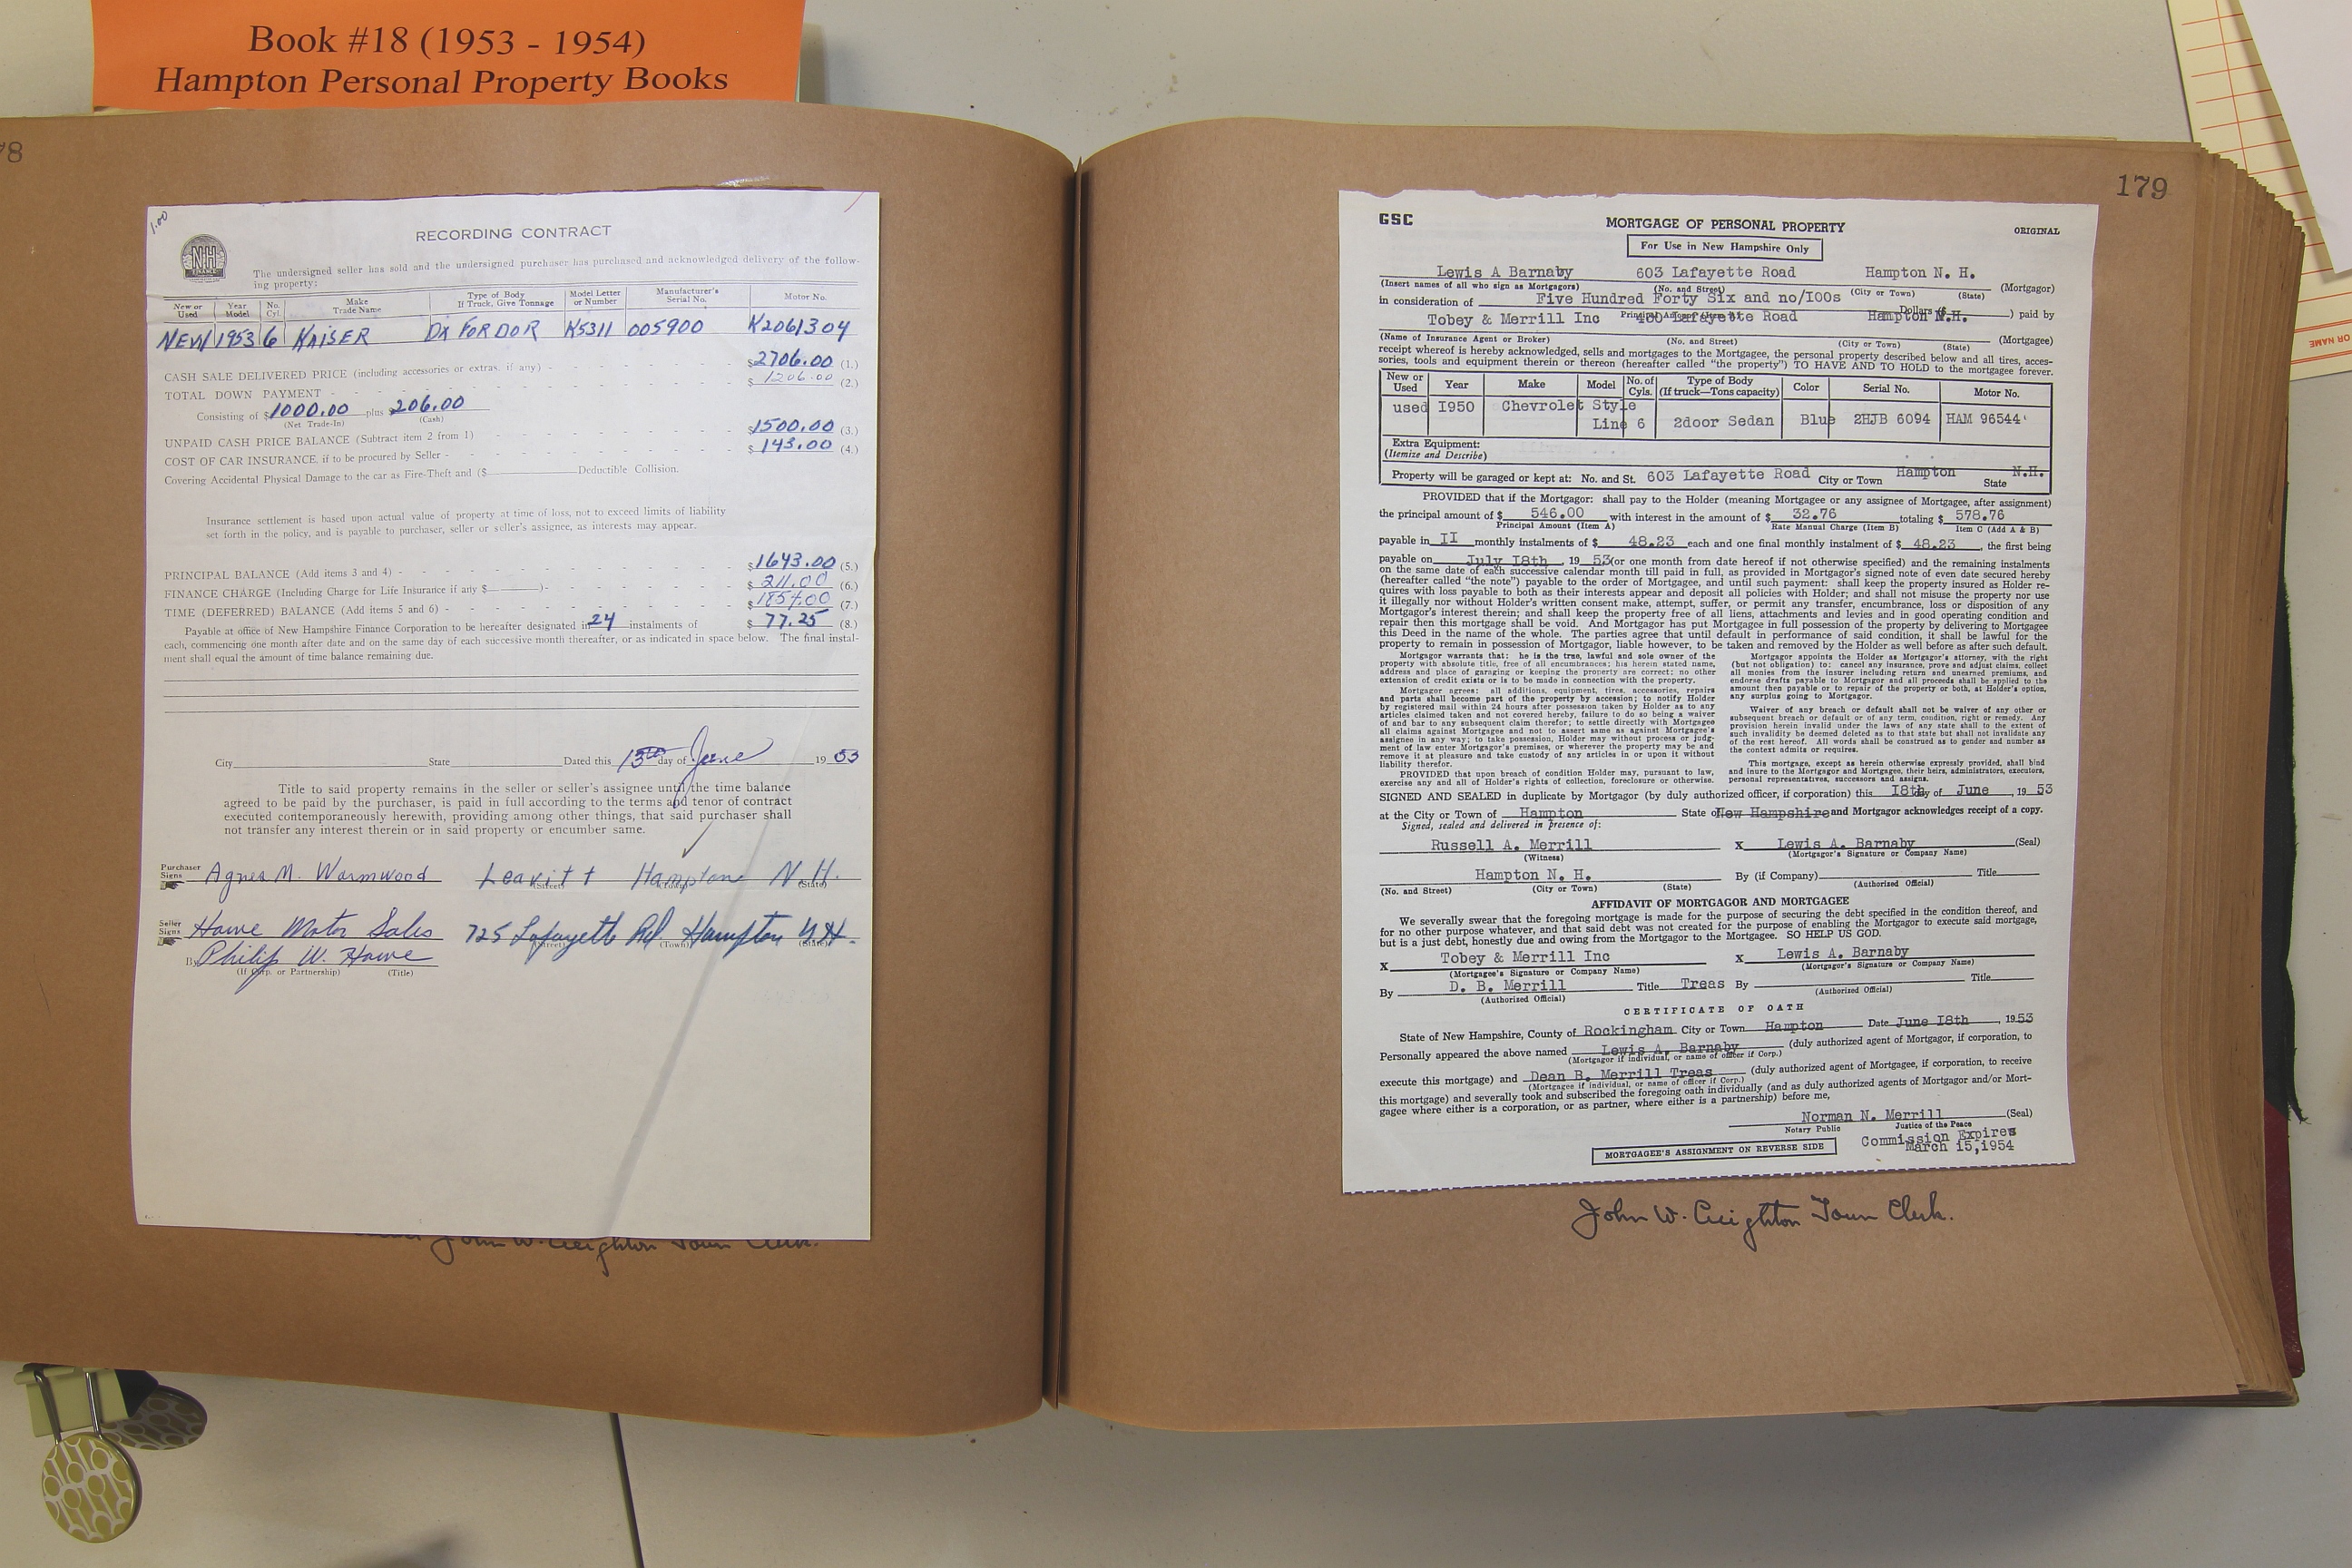 Book #18 (1953 - 1954)
Hampton Personal Property Books
78
1.00
NH
FINANCE
RECORDING CONTRACT
The undersigned seller has sold and the undersigned purchaser has purchased and acknowledged delivery of the follow-
ing property:
New or Used Year Model No. Cyl. Make Trade Name Type of Body If Truck, Give Tonnage Model Letter or Number Manufacturer's Serial No. Motor No.
NEW 1953 6 KAISER Dx FORDOR K5311 005900 K2061304
CASH SALE DELIVERED PRICE (including accessories or extras, if any) - - - - - - - $2706.00 (1.)
TOTAL DOWN PAYMENT - - - - - - - - - - $1206.00 (2.)
Consisting of $1000.00 plus $206.00
(Net Trade-In) (Cash)
UNPAID CASH PRICE BALANCE (Subtract item 2 from 1) - - - - - - - $1500.00 (3.)
COST OF CAR INSURANCE, if to be procured by Seller - - - - - - - - $143.00 (4.)
Covering Accidental Physical Damage to the car as Fire-Theft and ($ Deductible Collision.
Insurance settlement is based upon actual value of property at time of loss, not to exceed limits of liability
set forth in the policy, and is payable to purchaser, seller or seller's assignee, as interests may appear.
PRINCIPAL BALANCE (Add items 3 and 4) - - - - - - - - - $1643.00 (5.)
FINANCE CHARGE (Including Charge for Life Insurance if any $ )- - - - - - $211.00 (6.)
TIME (DEFERRED) BALANCE (Add items 5 and 6) - - - - - - - - $1854.00 (7.)
Payable at office of New Hampshire Finance Corporation to be hereafter designated in 24 instalments of $77.25 (8.)
each, commencing one month after date and on the same day of each successive month thereafter, or as indicated in space below. The final instal-
ment shall equal the amount of time balance remaining due.
City State Dated this 13th day of June 19 53
Title to said property remains in the seller or seller's assignee until the time balance
agreed to be paid by the purchaser, is paid in full according to the terms and tenor of contract
executed contemporaneously herewith, providing among other things, that said purchaser shall
not transfer any interest therein or in said property or encumber same.
Purchaser Signs Agnes M. Warmwood Leavitt Hampton N.H.
(Street) (Town) (State)
Seller Signs Howe Motor Sales 725 Lafayette Rd. Hampton N.H.
(Street) (Town) (State)
By Philip W. Howe
(If Corp. or Partnership) (Title)
John W. Creighton Town Clerk.
179
GSC MORTGAGE OF PERSONAL PROPERTY ORIGINAL
For Use in New Hampshire Only
Lewis A Barnaby 603 Lafayette Road Hampton N. H. (Mortgagor)
(Insert names of all who sign as Mortgagors) (No. and Street) (City or Town) (State)
in consideration of Five Hundred Forty Six and no/I00s Dollars ($ ) paid by
Principal Amount (Item A)
Tobey & Merrill Inc 400 Lafayette Road Hampton N.H. (Mortgagee)
(Name of Insurance Agent or Broker) (No. and Street) (City or Town) (State)
receipt whereof is hereby acknowledged, sells and mortgages to the Mortgagee, the personal property described below and all tires, acces-
sories, tools and equipment therein or thereon (hereafter called "the property") TO HAVE AND TO HOLD to the mortgagee forever.
New or Used Year Make Model No. of Cyls. Type of Body (If truck—Tons capacity) Color Serial No. Motor No.
used I950 Chevrolet Style
Line 6 2door Sedan Blue 2HJB 6094 HAM 96544
Extra Equipment:
(Itemize and Describe)
Property will be garaged or kept at: No. and St. 603 Lafayette Road City or Town Hampton State N.H.
PROVIDED that if the Mortgagor: shall pay to the Holder (meaning Mortgagee or any assignee of Mortgagee, after assignment)
the principal amount of $ 546.00 with interest in the amount of $ 32.76 totaling $ 578.76
Principal Amount (Item A) Rate Manual Charge (Item B) Item C (Add A & B)
payable in II monthly instalments of $ 48.23 each and one final monthly instalment of $ 48.23, the first being
payable on July I8th, 19 53 (or one month from date hereof if not otherwise specified) and the remaining instalments
on the same date of each successive calendar month till paid in full, as provided in Mortgagor's signed note of even date secured hereby
(hereafter called "the note") payable to the order of Mortgagee, and until such payment: shall keep the property insured as Holder re-
quires with loss payable to both as their interests appear and deposit all policies with Holder; and shall not misuse the property nor use
it illegally nor without Holder's written consent make, attempt, suffer, or permit any transfer, encumbrance, loss or disposition of any
Mortgagor's interest therein; and shall keep the property free of all liens, attachments and levies and in good operating condition and
repair then this mortgage shall be void. And Mortgagor has put Mortgagee in full possession of the property by delivering to Mortgagee
this Deed in the name of the whole. The parties agree that until default in performance of said condition, it shall be lawful for the
property to remain in possession of Mortgagor, liable however, to be taken and removed by the Holder as well before as after such default.
Mortgagor warrants that: he is the true, lawful and sole owner of the
property with absolute title, free of all encumbrances; his herein stated name,
address and place of garaging or keeping the property are correct; no other
extension of credit exists or is to be made in connection with the property.
Mortgagor agrees: all additions, equipment, tires, accessories, repairs
and parts shall become part of the property by accession; to notify Holder
by registered mail within 24 hours after possession taken by Holder as to any
articles claimed taken and not covered hereby, failure to do so being a waiver
of and bar to any subsequent claim therefor; to settle directly with Mortgagee
all claims against Mortgagee and not to assert same as against Mortgagee's
assignee in any way; to take possession, Holder may without process or judg-
ment of law enter Mortgagor's premises, or wherever the property may be and
remove it at pleasure and take custody of any articles in or upon it without
liability therefor.
PROVIDED that upon breach of condition Holder may, pursuant to law,
exercise any and all of Holder's rights of collection, foreclosure or otherwise.
Mortgagor appoints the Holder as Mortgagor's attorney, with the right
(but not obligation) to: cancel any insurance, prove and adjust claims, collect
all monies from the insurer including return and unearned premiums, and
endorse drafts payable to Mortgagor and all proceeds shall be applied to the
amount then payable or to repair of the property or both, at Holder's option,
any surplus going to Mortgagor.
Waiver of any breach or default shall not be waiver of any other or
subsequent breach or default or of any term, condition, right or remedy. Any
provision herein invalid under the laws of any state shall to the extent of
such invalidity be deemed deleted as to that state but shall not invalidate any
of the rest hereof. All words shall be construed as to gender and number as
the context admits or requires.
This mortgage, except as herein otherwise expressly provided, shall bind
and inure to the Mortgagor and Mortgagee, their heirs, administrators, executors,
personal representatives, successors and assigns.
SIGNED AND SEALED in duplicate by Mortgagor (by duly authorized officer, if corporation) this I8th day of June, 19 53
at the City or Town of Hampton State of New Hampshire and Mortgagor acknowledges receipt of a copy.
Signed, sealed and delivered in presence of:
Russell A. Merrill X Lewis A. Barnaby (Seal)
(Witness) (Mortgagor's Signature or Company Name)
Hampton N. H. By (if Company) Title
(No. and Street) (City or Town) (State) (Authorized Official)
AFFIDAVIT OF MORTGAGOR AND MORTGAGEE
We severally swear that the foregoing mortgage is made for the purpose of securing the debt specified in the condition thereof, and
for no other purpose whatever, and that said debt was not created for the purpose of enabling the Mortgagor to execute said mortgage,
but is a just debt, honestly due and owing from the Mortgagor to the Mortgagee. SO HELP US GOD.
X Tobey & Merrill Inc X Lewis A. Barnaby
(Mortgagee's Signature or Company Name) (Mortgagor's Signature or Company Name)
By D. B. Merrill Title Treas By Title
(Authorized Official) (Authorized Official)
CERTIFICATE OF OATH
State of New Hampshire, County of Rockingham City or Town Hampton Date June I8th, 1953
Personally appeared the above named Lewis A. Barnaby (duly authorized agent of Mortgagor, if corporation, to
(Mortgagor if individual, or name of officer if Corp.)
execute this mortgage) and Dean B. Merrill Treas (duly authorized agent of Mortgagee, if corporation, to receive
(Mortgagee if individual, or name of officer if Corp.)
this mortgage) and severally took and subscribed the foregoing oath individually (and as duly authorized agents of Mortgagor and/or Mort-
gagee where either is a corporation, or as partner, where either is a partnership) before me,
Norman N. Merrill (Seal)
Notary Public Justice of the Peace
Commission Expires
March 15,1954
MORTGAGEE'S ASSIGNMENT ON REVERSE SIDE
John W. Creighton Town Clerk.
OR NAME